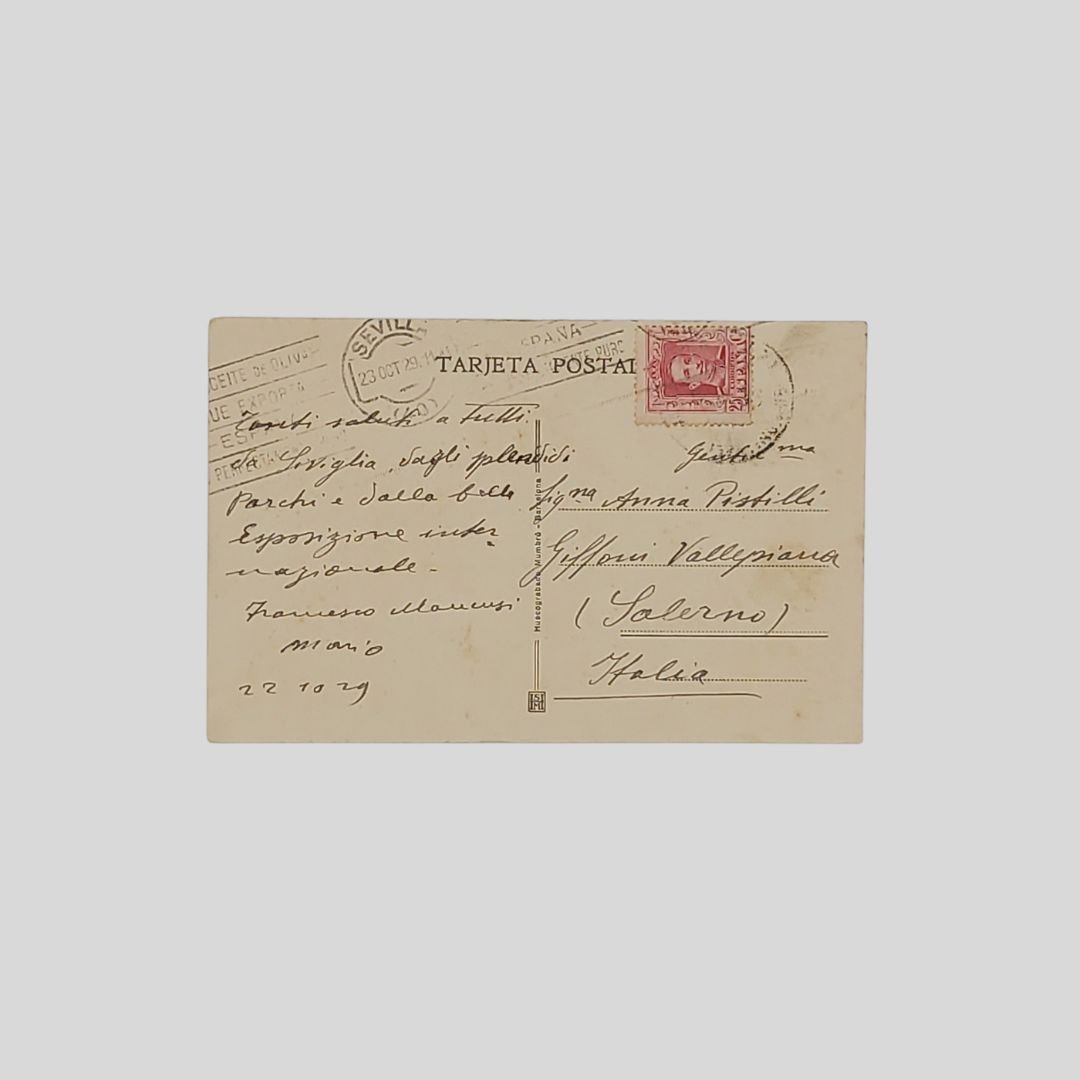 CEITE DE OLIVA
UE EXPORTA
ESPA
PERFECTA
SEVILLA
23 OCT 29
TARJETA POSTAL
SPAÑA
ESPAÑA
25
Tanti saluti a tutti
da Siviglia, dagli splendidi
Parchi e dalla bella
Esposizione inter
nazionale -
Francesco Mancusi
Mario
22 10 29
Huecograbado Mumbrú - Barcelona
Gentil ma
Sig na Anna Pistilli
Giffoni Vallepiana
(Salerno)
Italia